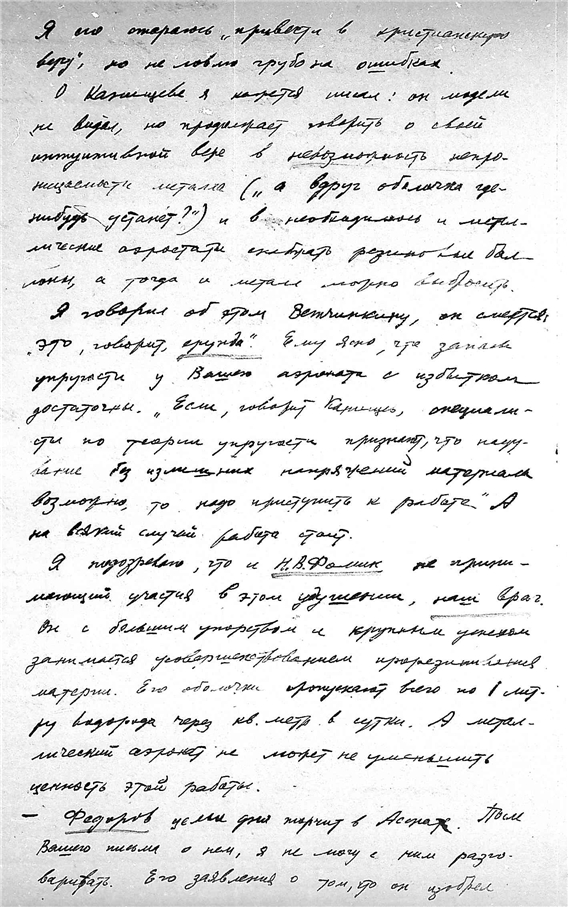 Я его стараюсь „привести в христианскую
веру“, но не ловлю грубо на ошибках.
О Канищеве я кажется писал: он модели
не видал, но продолжает говорить о своей
интуитивной вере в невозможность непро-
ницаемости металла („а вдруг оболочка где-
нибудь устанет?“) и в необходимость и метал-
лические аэростаты снабжать резиновыми бал-
лоны, а тогда и металл можно выбросить.
Я говорил об этом Ветчинкину, он смеётся:
„это, говорит, ерунда“. Ему ясно, что запасы
упругости у Вашего аэроната с избытком
достаточны. „Если, говорит Канищев, специали-
сты по теории упругости признают, что наду-
вание без излишних напряжений материала
возможно, то надо приступить к работе“. А
на всякий случай работа стоит.
Я подозреваю, что и Н.В.Фомин не прини-
мающий участия в этом удушении, наш враг.
Он с большим упорством и крупным успехом
занимается усовершенствованием прорезинивания
материи. Его оболочки пропускают всего по 1 лит-
ру водорода через кв. метр в сутки. А метал-
лический аэронат не может не уменьшить
ценность этой работы.
— Федоров целые дни торчит в Асснате. После
Вашего письма о нем, я не могу с ним разго-
варивать. Его заявления о том, что он изобрел